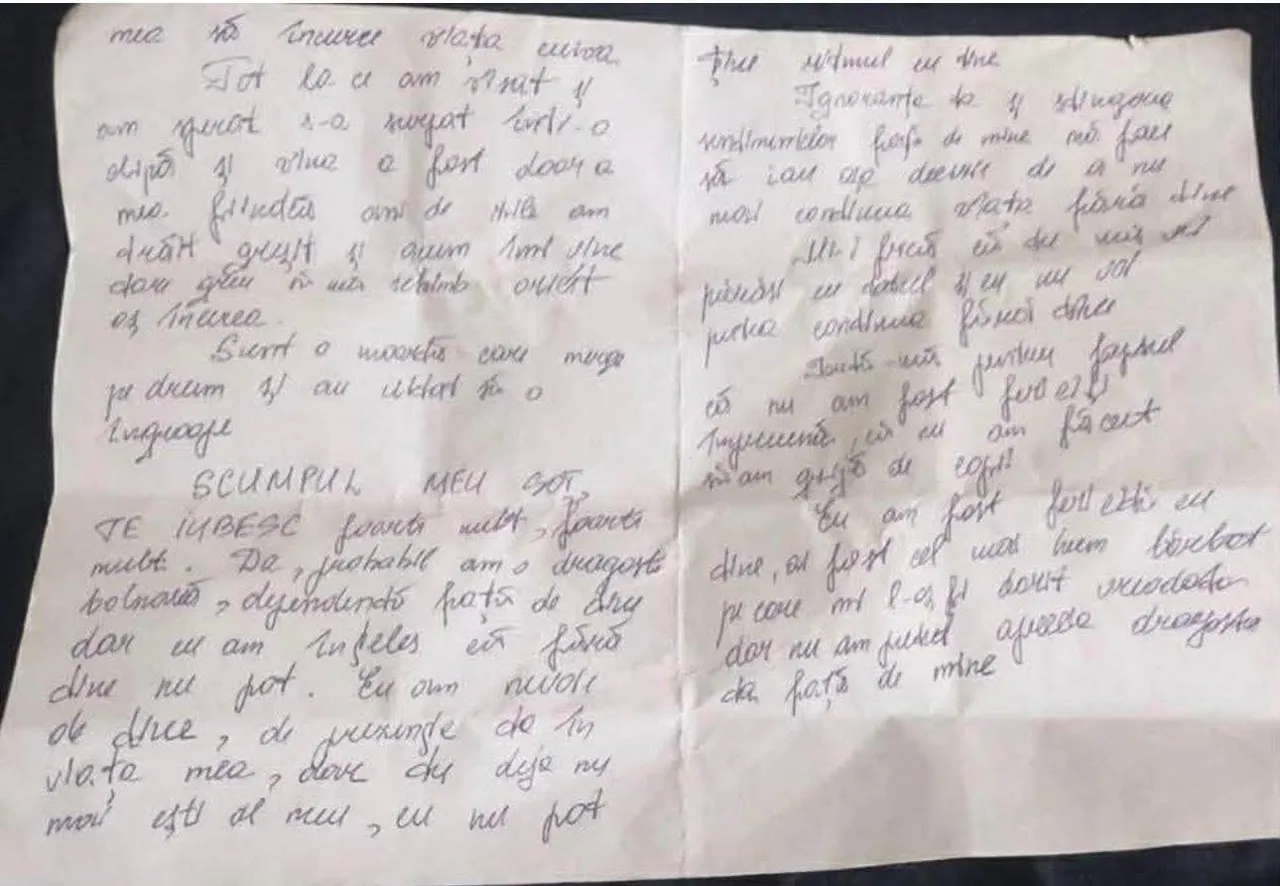 mea să încurce viața cuiva.
Tot la ce am visat și
am sperat s-a surpat într-o
clipă și vina a fost doar a
mea. fiindcă ani de zile am
trăit greșit și acum îmi vine
doar greu să mă schimb oricît
aș încerca.
Sunt o moartă care merge
pe drum și au uitat să o
îngroape
SCUMPUL MEU SOȚ,
TE IUBESC foarte mult, foarte
mult. Da, probabil am o dragoste
bolnavă, dependentă față de tine
dar eu am înțeles că fără
tine nu pot. Eu am nevoie
de tine, de prezența ta în
viața mea, dar tu deja nu
mai ești al meu, eu nu pot
ține ritmul cu tine
Ignoranța ta și stingerea
sentimentelor față de mine mă face
să iau așa decizie de a nu
mai continua viața fără tine
frică că tu mă vei
părăsi cu totul și eu nu voi
putea continua fără tine
Iartă-mă pentru faptul
că nu am fost fericiți
împreună, că eu am făcut
să am grijă de copii
Eu am fost fericită cu
tine, ai fost cel mai bun bărbat
pe care mi l-aș fi dorit vreodată
dar nu am putut aprecia dragostea
ta față de mine